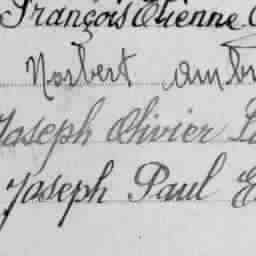 François Etienne
Norbert Amb
Joseph Olivier
Joseph Paul E